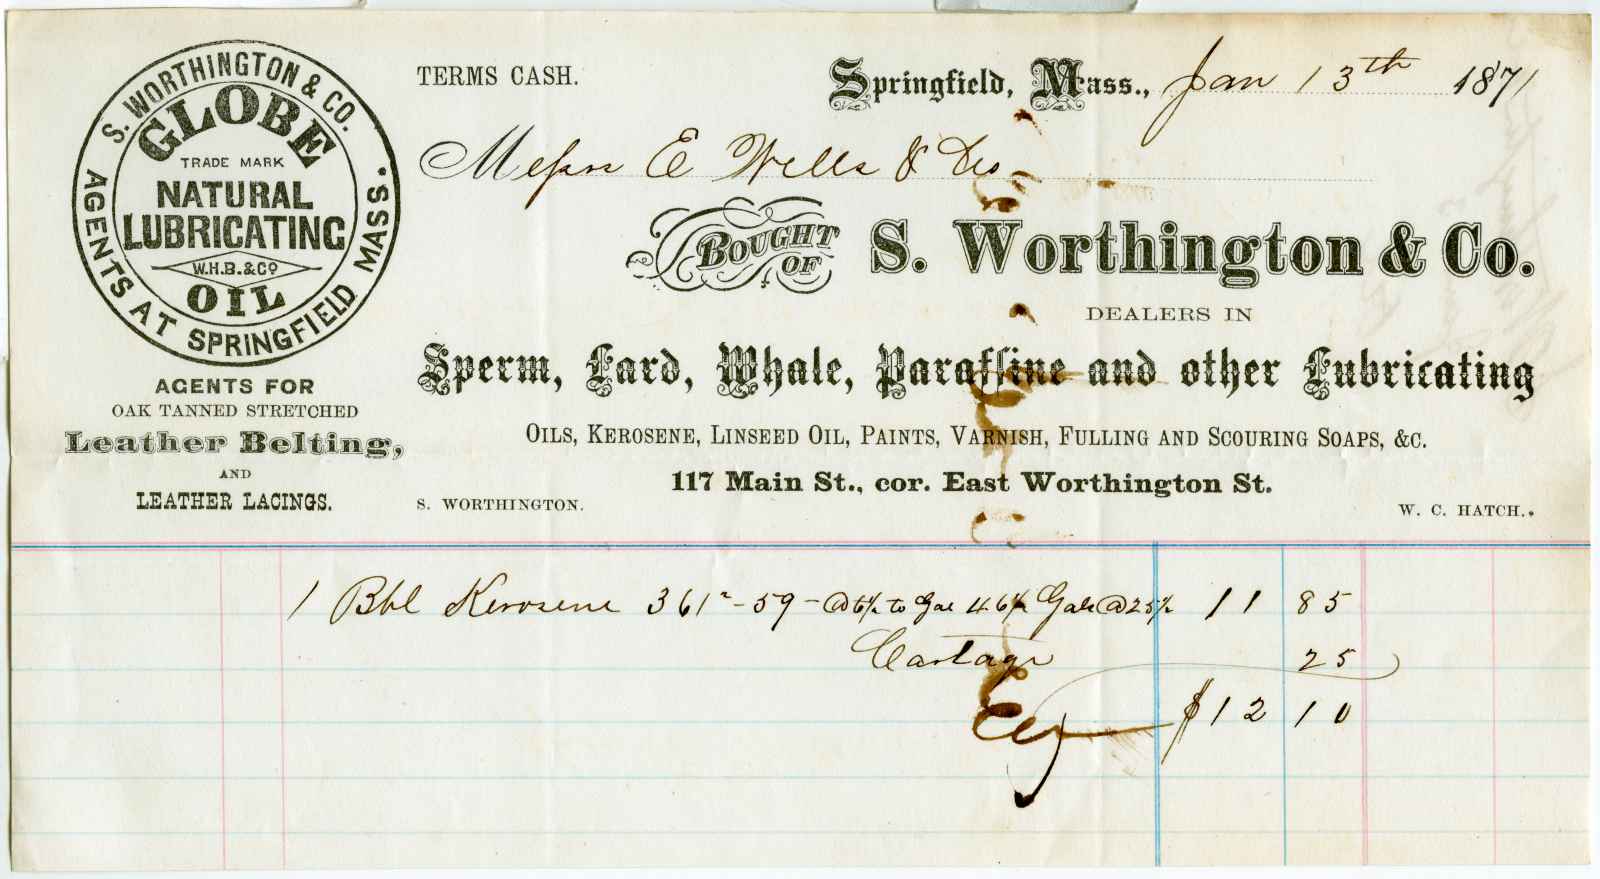 S. WORTHINGTON & CO.
AGENTS AT SPRINGFIELD MASS.
GLOBE
TRADE MARK
NATURAL
LUBRICATING
W.H.B. & CO
OIL
AGENTS FOR
OAK TANNED STRETCHED
Leather Belting,
AND
LEATHER LACINGS.
TERMS CASH.
Springfield, Mass., Jan 13th 1871
Messrs E Wells &
BOUGHT OF S. Worthington & Co.
DEALERS IN
Sperm, Lard, Whale, Paraffine and other Lubricating
OILS, KEROSENE, LINSEED OIL, PAINTS, VARNISH, FULLING AND SCOURING SOAPS, &C.
117 Main St., cor. East Worthington St.
S. WORTHINGTON.
W. C. HATCH.
1 Bbl Kerosene 361 - 59 - @ 6½ to Gal 46½ Gals @ 25½ 11 85
Cartage 25
$12 10